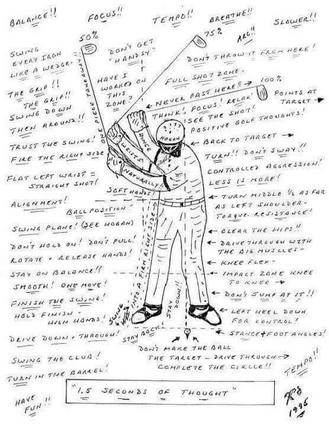 BALANCE!!
FOCUS!!
TEMPO!!
BREATHE!!
SLOWER!!
50%
75%
ARC!!
SWING
EVERY IRON
LIKE A WEDGE.
DON'T GET
"HANDSY"
DON'T THROW IT FROM HERE!
THE GRIP!!
THE GRIP!!
HAVE I
WORKED ON
THIS
ZONE?
FULL SHOT ZONE.
100%
NEVER FAST HERE?
POINTS AT
TARGET
SWING DOWN
THEN AROUND!!
THINK! FOCUS! RELAX
SEE THE SHOT!
POSITIVE GOLF THOUGHTS!
TRUST THE SWING!
HOGAN
BACK TO TARGET
FIRE THE RIGHT SIDE
TURN!! DON'T SWAY!!
FLAT LEFT WRIST =
STRAIGHT SHOT!
NATURALLY!
CONTROLLED AGGRESSION!
SOFT HANDS!
LESS IS MORE!
ALIGNMENT!
TURN MIDDLE 1/2 AS FAR
AS LEFT SHOULDER-
TORQUE-RESISTANCE!
BALL POSITION
SWING PLANE! (SEE HOGAN)
CLEAR THE HIPS!!
DON'T HOLD ON! DON'T PULL!
DRIVE THROUGH WITH
THE BIG MUSCLES-
ROTATE + RELEASE HANDS!
KNEE FLEX-
STAY ON BALANCE!!
IMPACT ZONE KNEE
TO KNEE
SMOOTH! ONE MOVE!
DON'T JUMP AT IT!!
FINISH THE SWING!
HOLD FINISH-
HIGH HANDS!
LEFT HEEL DOWN
FOR CONTROL!
DRIVE DOWN + THROUGH!
STAY BACK!
STAY DOWN!
STANCE + FOOT ANGLES!
SWING THE CLUB!
DON'T MAKE THE BALL
THE TARGET - DRIVE THROUGH
COMPLETE THE CIRCLE!!
TURN IN THE BARREL!
TEMPO!!
HAVE
FUN!!
"1.5 SECONDS OF THOUGHT"
1996